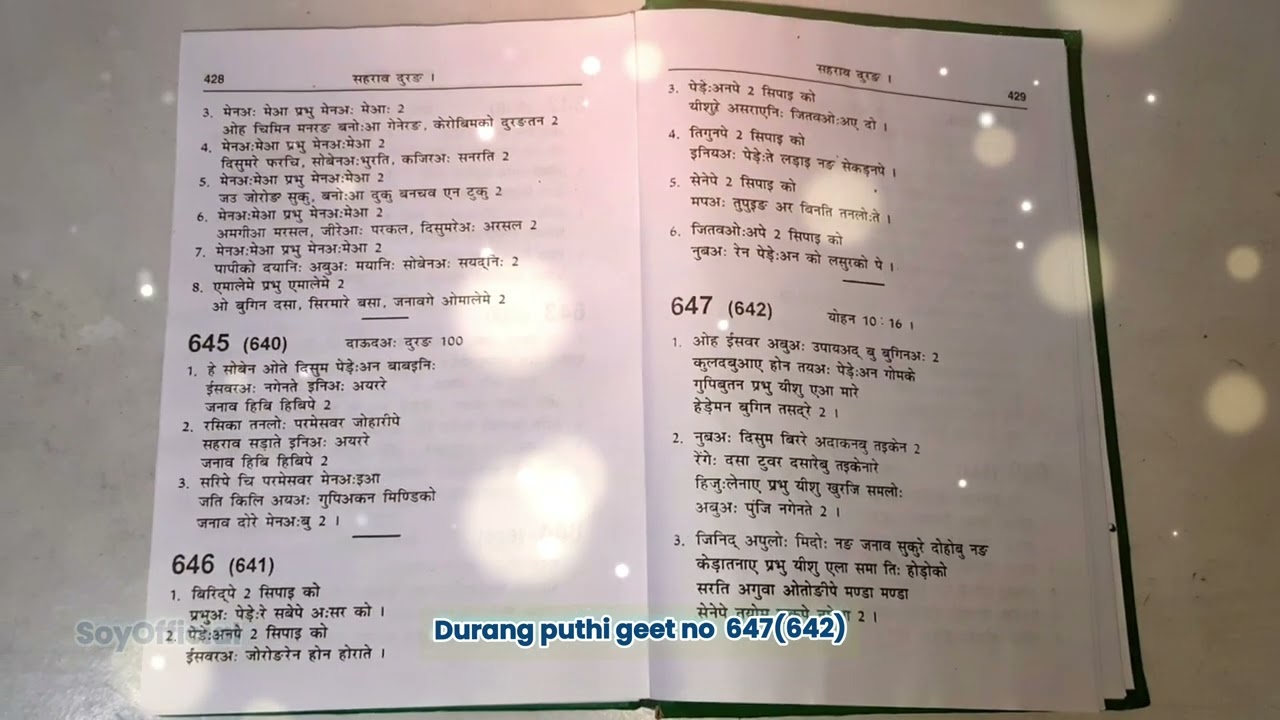 428
सहराव दुरङ ।
3. मेनअः मेआ प्रभु मेनअः मेआः 2
ओह चिमिन मनरङ बनोःआ गेनेरङ, केरोबिमको दुरङतन 2
4. मेनअःमेआ प्रभु मेनअःमेआ 2
दिसुमरे फरचि, सोबेनअःभुरति, कजिरअः सनरति 2
5. मेनअःमेआ प्रभु मेनअःमेआ 2
जउ जोरोङ सुकु, बनोःआ दुकु बनचव एन टुकु 2
6. मेनअःमेआ प्रभु मेनअःमेआ 2
अमगीआ मरसल, जीरेआः परकल, दिसुमरेअः अरसल 2
7. मेनअःमेआ प्रभु मेनअःमेआ 2
पापीको दयानिः अबुअः मयानिः सोबेनअः सयद्निः 2
8. एमालेमे प्रभु एमालेमे 2
ओ बुगिन दसा, सिरमारे बसा, जनावगे ओमालेमे 2
645 (640) दाऊदअः दुरङ 100
1. हे सोबेन ओते दिसुम पेड़ेःअन बाबइनिः
ईसवरअः नगेनते इनिअः अयररे
जनाव हिबि हिबिपे 2
2. रसिका तनलोः परमेसवर जोहारीपे
सहराव सड़ाते इनिअः अयररे
जनाव हिबि हिबिपे 2
3. सरिपे चि परमेसवर मेनअःइआ
जति किलि अयअः गुपिअकन मिण्डिको
जनाव दोरे मेनअःबु 2 ।
646 (641)
1. बिरिद्पे 2 सिपाइ को
प्रभुअः पेड़ेःरे सबेपे अःसर को ।
2. पेड़ेःअनपे 2 सिपाइ को
ईसवरअः जोरोङरेन होन होराते ।
सहराव दुरङ ।
429
3. पेड़ेःअनपे 2 सिपाइ को
यीशुरे असराएनिः जितवओःअए दो ।
4. तिगुनपे 2 सिपाइ को
इनियअः पेड़ेःते लड़ाइ नङ सेकड़नपे ।
5. सेनेपे 2 सिपाइ को
मपअः तुपुइङ अर बिनति तनलोःते ।
6. जितवओःअपे 2 सिपाइ को
नुबअः रेन पेड़ेःअन को लसुरको पे ।
647 (642) योहन 10 : 16 ।
1. ओह ईसवर अबुअः उपायअद् बु बुगिनअः 2
कुलदबुआए होन तयअः पेड़ेःअन गोमके
गुपिबुतन प्रभु यीशु एआ मारे
हेड़ेमन बुगिन तसद्रे 2 ।
2. नुबअः दिसुम बिररे अदाकनबु तइकेन 2
रेंगेः दसा टुवर दसारेबु तइकेनारे
हिजुःलेनाए प्रभु यीशु खुरजि समलोः
अबुअः पुंजि नगेनते 2 ।
3. जिनिद् अपुलोः मिदोः नङ जनाव सुकुरे दोहोबु नङ
केड़ातनाए प्रभु यीशु एला समा तिः होड़ोको
सरति अगुवा ओतोङीपे मण्डा मण्डा
सेनेपे 2 ।
Durang puthi geet no 647(642)